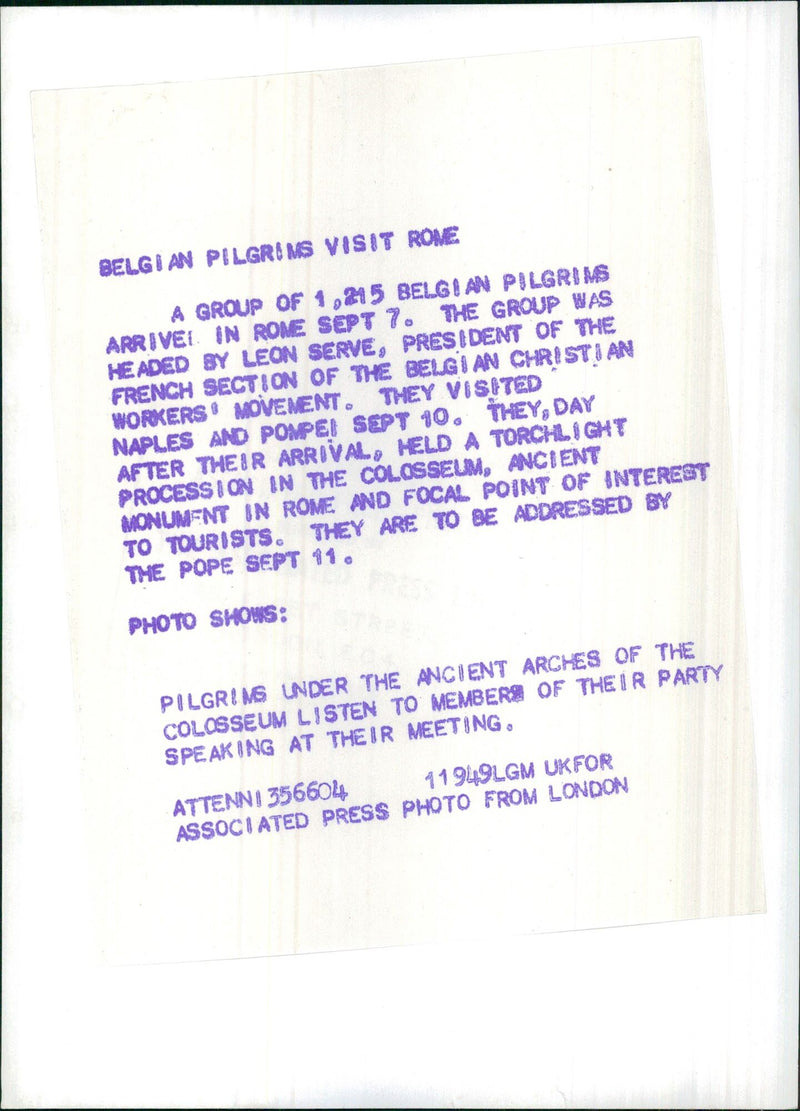 BELGIAN PILGRIMS VISIT ROME
A GROUP OF 1,215 BELGIAN PILGRIMS
ARRIVE. IN ROME SEPT 7. THE GROUP WAS
HEADED BY LEON SERVE, PRESIDENT OF THE
FRENCH SECTION OF THE BELGIAN CHRISTIAN
WORKERS' MOVEMENT. THEY VISITED
NAPLES AND POMPEI SEPT 10. THEY, DAY
AFTER THEIR ARRIVAL, HELD A TORCHLIGHT
PROCESSION IN THE COLOSSEUM, ANCIENT
MONUMENT IN ROME AND FOCAL POINT OF INTEREST
TO TOURISTS. THEY ARE TO BE ADDRESSED BY
THE POPE SEPT 11.
PHOTO SHOWS:
PILGRIMS UNDER THE ANCIENT ARCHES OF THE
COLOSSEUM LISTEN TO MEMBERS OF THEIR PARTY
SPEAKING AT THEIR MEETING.
ATTENNI356604 11949LGM UKFOR
ASSOCIATED PRESS PHOTO FROM LONDON